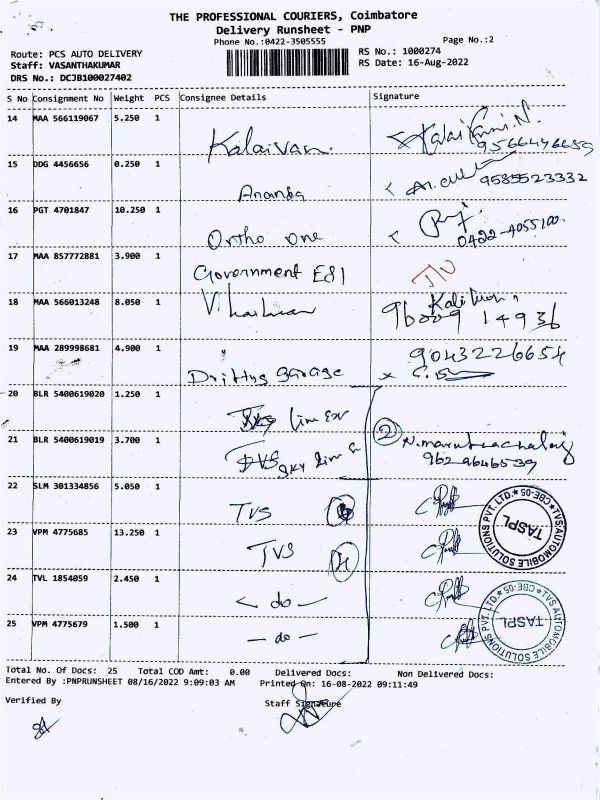 THE PROFESSIONAL COURIERS, Coimbatore
Delivery Runsheet - PNP
Phone No.:0422-3505555
Page No.:2
Route: PCS AUTO DELIVERY
RS No.: 1000274
Staff: VASANTHAKUMAR
RS Date: 16-Aug-2022
DRS No.: DCJB100027402
S No Consignment No Weight PCS Consignee Details Signature
14 MAA 566119067 5.250 1
Kalaivan.
9566446659
15 DDG 4456656 0.250 1
Ananda
9585523332
16 PGT 4701847 10.250 1
Ortho one
0422-4055100.
17 MAA 857772881 3.900 1
Government ESI
18 MAA 566013248 8.050 1
96009 14936
19 MAA 289998681 4.900 1
9043226654
Drifting garage
20 BLR 5400619020 1.250 1
21 BLR 5400619019 3.700 1
2
9629646539
22 SLM 301334856 5.050 1
TVS
23 VPM 4775685 13.250 1
TVS
24 TVL 1854059 2.450 1
- do -
25 VPM 4775679 1.500 1
- do -
TVS AUTOMOBILE SOLUTIONS PVT. LTD. ★ CBE-05 ★
TASPL
TVS AUTOMOBILE SOLUTIONS PVT. LTD. ★ CBE-05 ★
TASPL
Total No. Of Docs: 25 Total COD Amt: 0.00 Delivered Docs: Non Delivered Docs:
Entered By :PNPRUNSHEET 08/16/2022 9:09:03 AM Printed On: 16-08-2022 09:11:49
Verified By Staff Signature